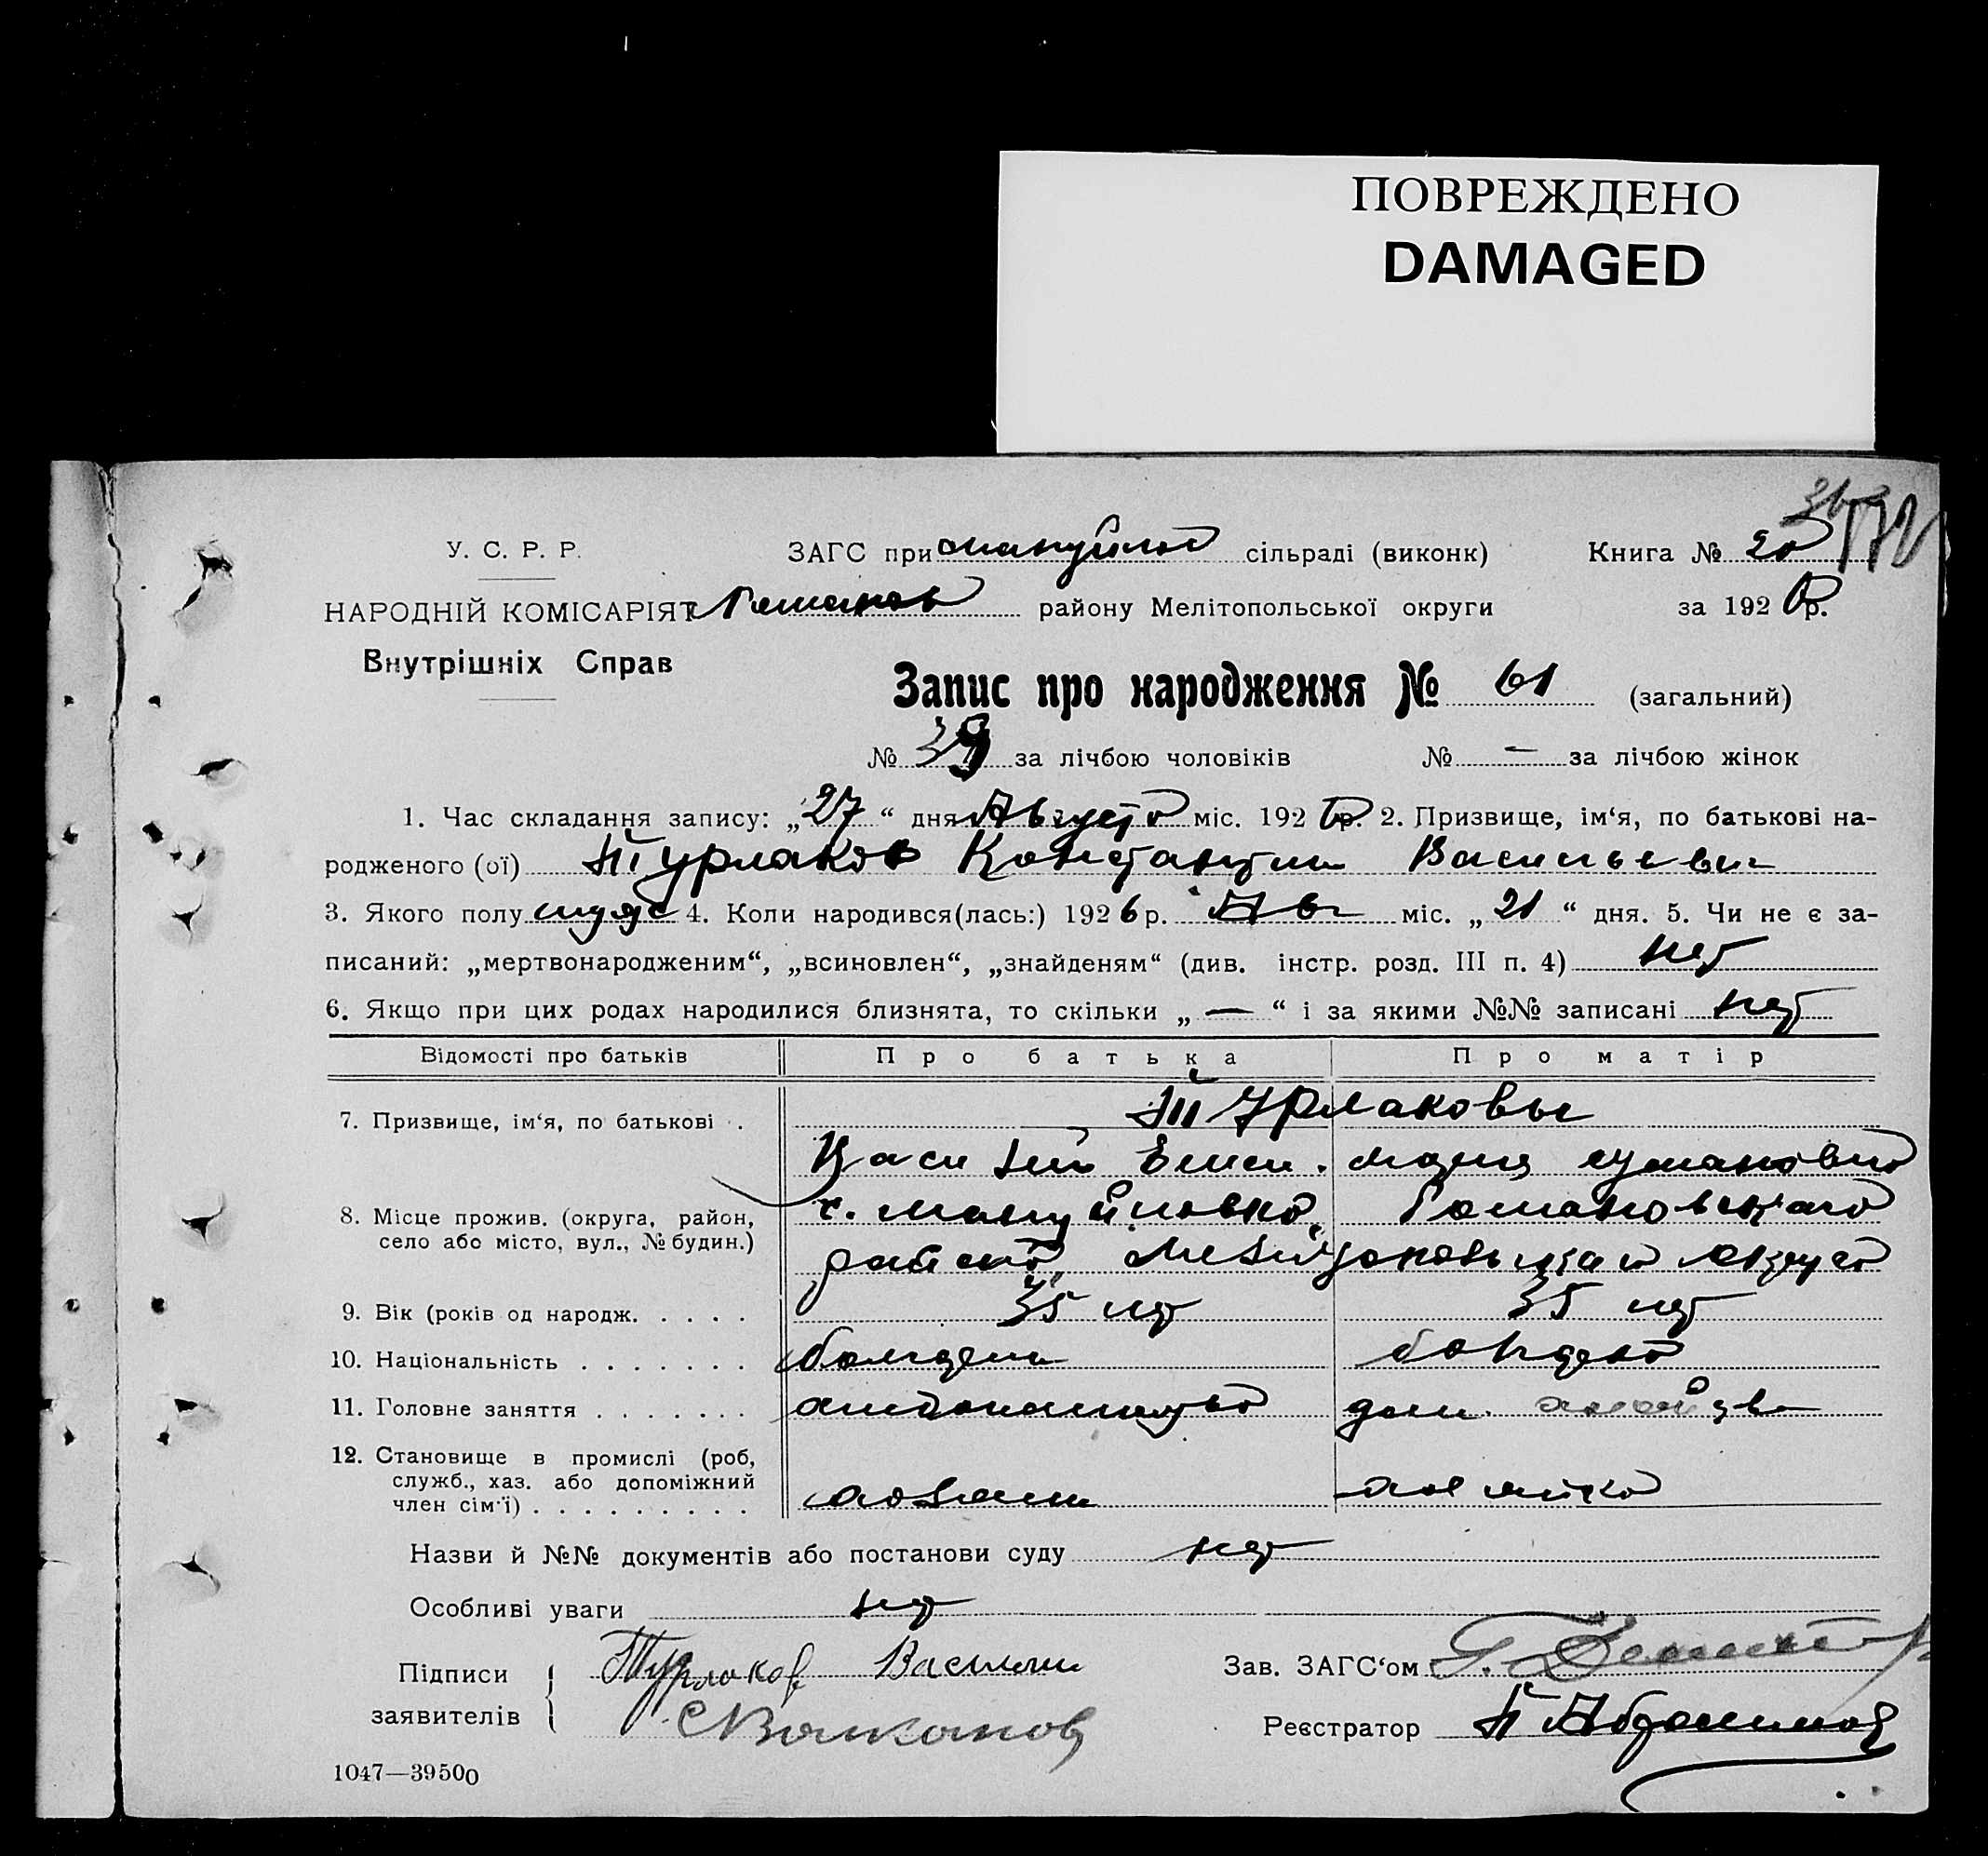 ПОВРЕЖДЕНО
DAMAGED
У. С. Р. Р. ЗАГС при Мануйлов сільраді (виконк) Книга № 20
НАРОДНІЙ КОМІСАРІЯТ Романов району Мелітопольської округи за 1926 р.
Внутрішніх Справ
Запис про народження № 61 (загальний)
№ 39 за лічбою чоловіків № — за лічбою жінок
1. Час складання запису: „27“ дня Августа міс. 1926 р. 2. Призвище, ім‘я, по батькові на-
родженого (ої) Турлаков Константин Васильевич
3. Якого полу муж 4. Коли народився(лась:) 1926 р. Авг міс. „21“ дня. 5. Чи не є за-
писаний: „мертвонародженим“, „всиновлен“, „знайденям“ (див. інстр. розд. III п. 4) нет
6. Якщо при цих родах народилися близнята, то скільки „—“ і за якими №№ записані нет
Відомості про батьків Про батька Про матір
7. Призвище, ім‘я, по батькові . Турлаковы
Василий
8. Місце прожив. (округа, район, с. Мануйловка, Романовского
село або місто, вул., № будин.) района, Мелитопольской округа
9. Вік (років од народж. . . . . 35 лет 35 лет
10. Національність . . . . . . .
11. Головне заняття . . . . . . . дом. хозяйство
12. Становище в промислі (роб,
служб., хаз. або допоміжний хозяин хозяйка
член сім‘ї) . . . . . . . . .
Назви й №№ документів або постанови суду нет
Особливі уваги нет
Підписи Турлаков Василий Зав. ЗАГС‘ом
заявителів Реєстратор
1047—39500